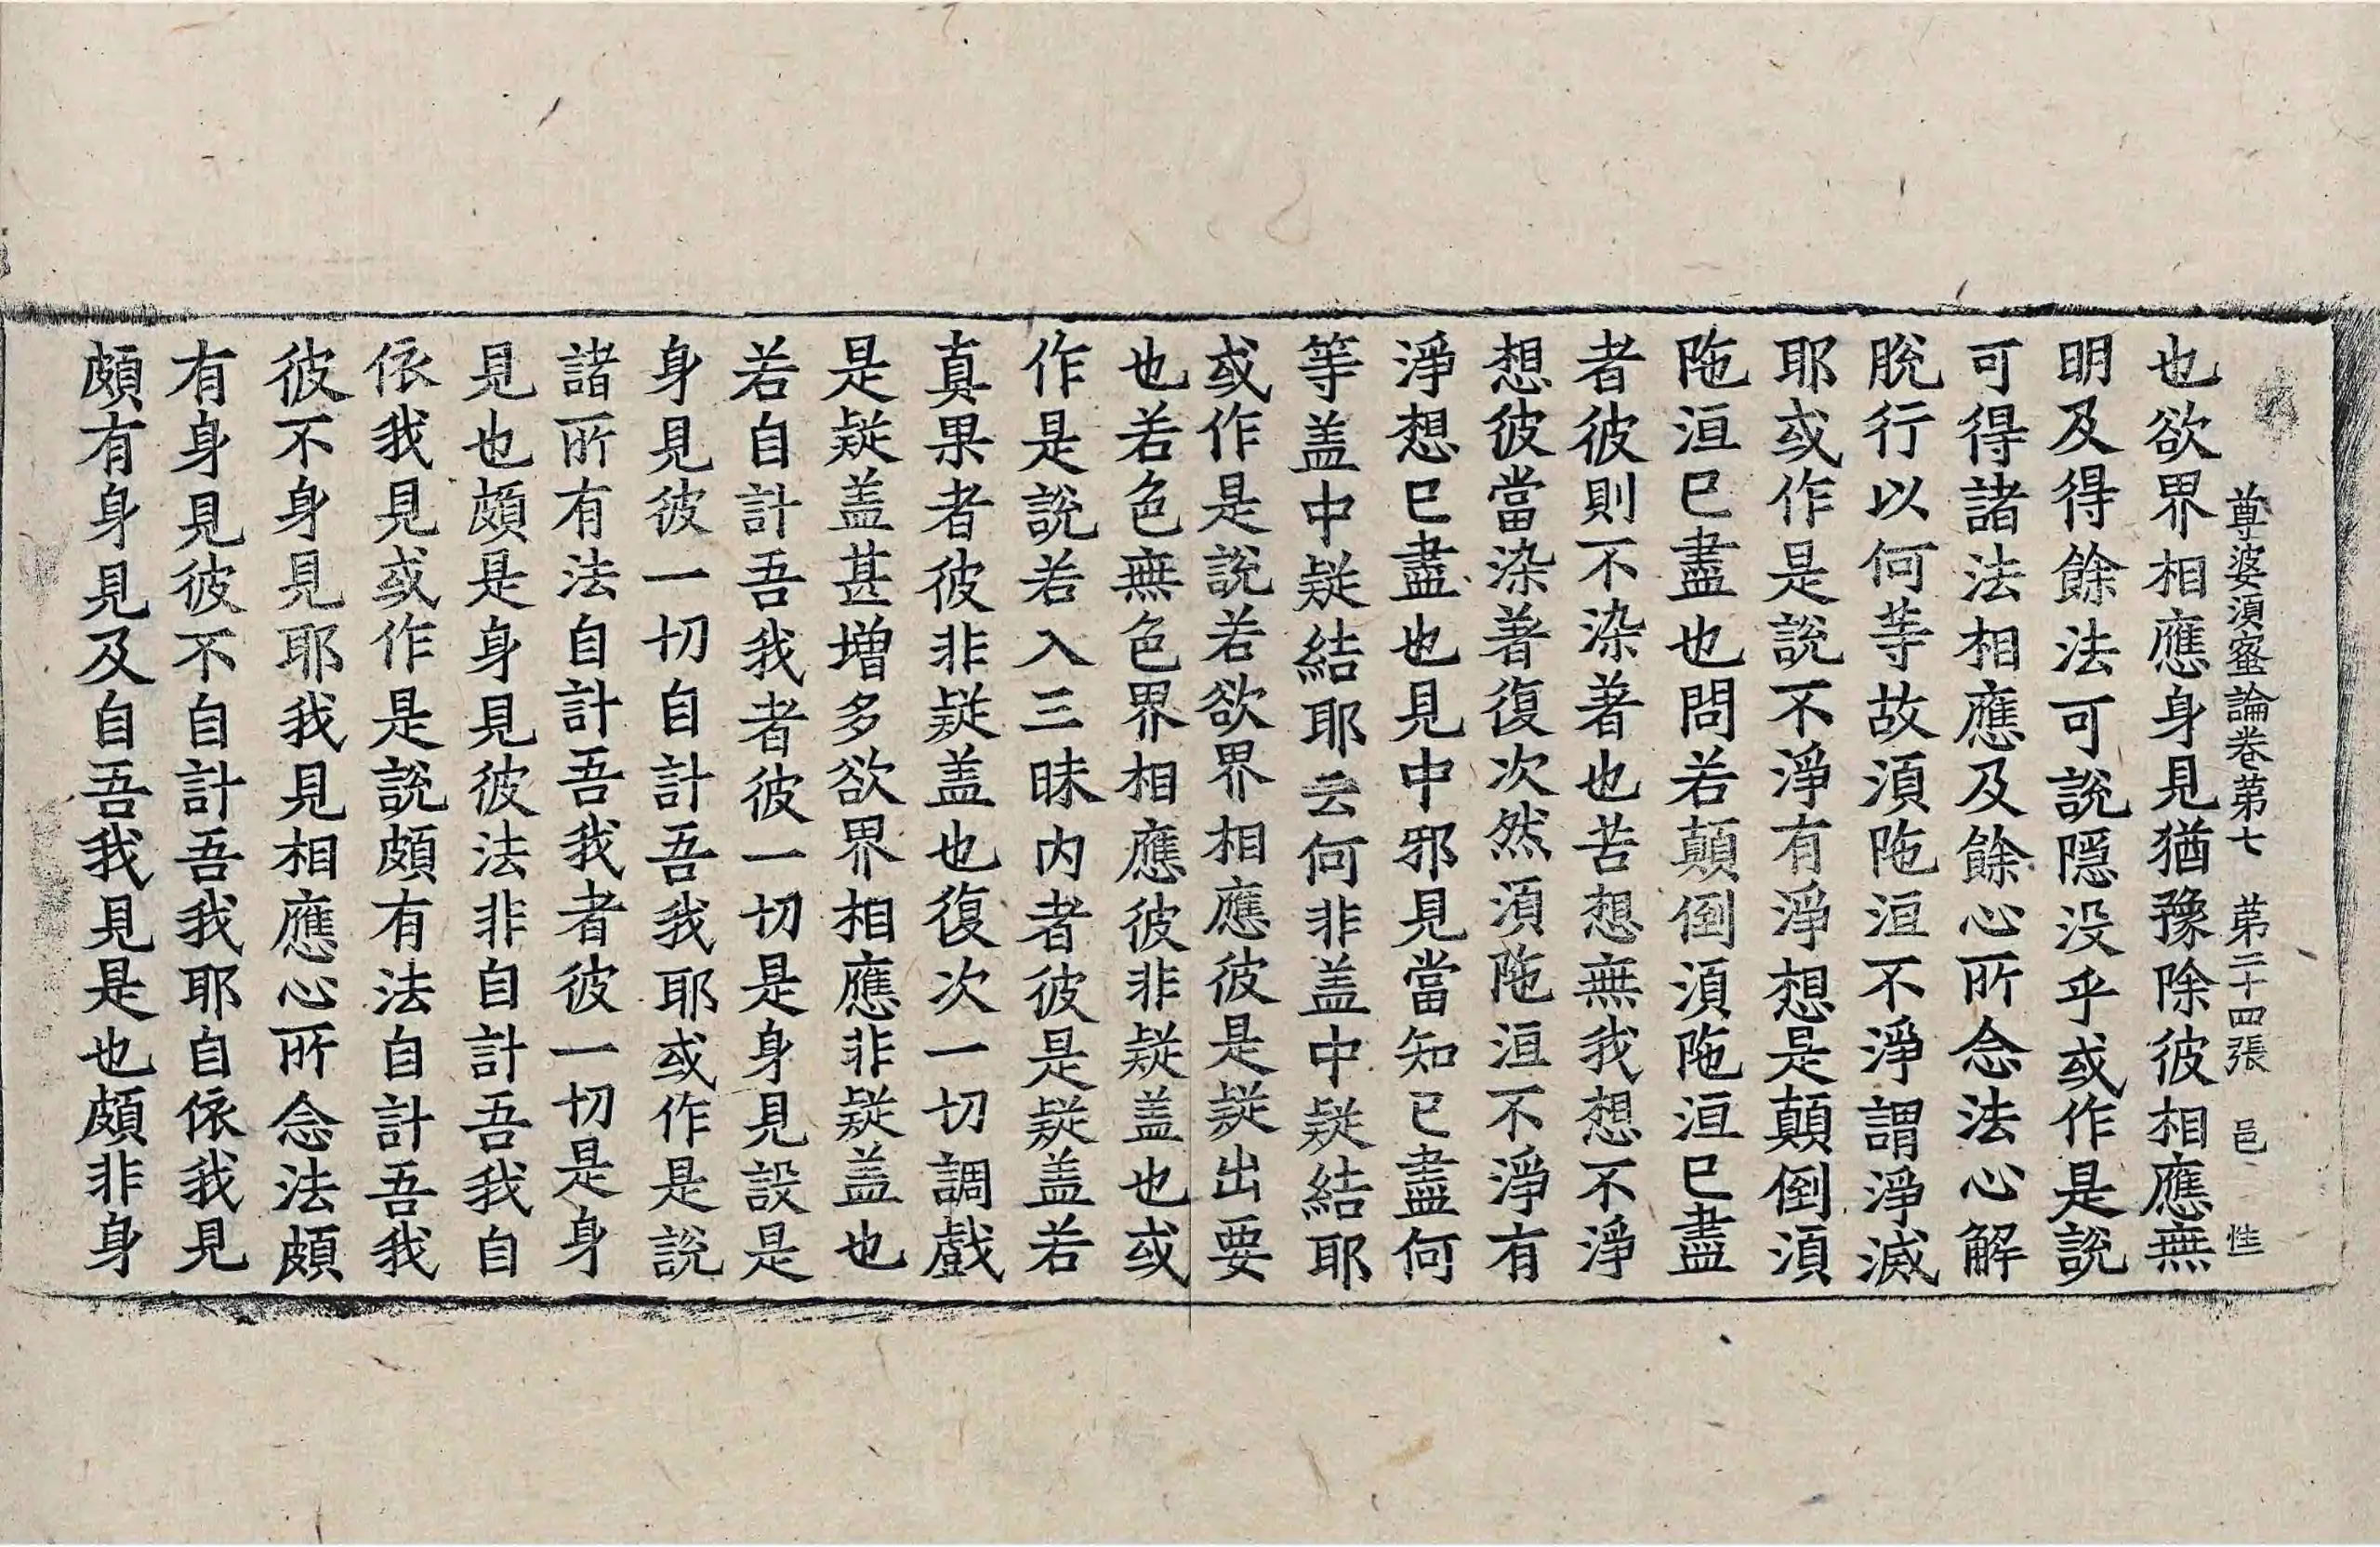 尊婆須蜜論卷第七 第二十四張 邑
也欲界相應身見猶豫除彼相應無
明及得餘法可說隱没乎或作是說
可得諸法相應及餘心所念法心解
脫行以何等故須陁洹不淨謂淨滅
耶或作是說不淨有淨想是顛倒須
陁洹已盡也問若顛倒須陁洹已盡
者彼則不染著也苦想無我想不淨
想彼當染著復次然須陁洹不淨有
淨想已盡也見中邪見當知已盡何
等盖中疑結耶云何非盖中疑結耶
或作是說若欲界相應彼是疑出要
也若色無色界相應彼非疑盖也或
作是說若入三昧内者彼是疑盖若
真果者彼非疑盖也復次一切調戲
是疑盖甚増多欲界相應非疑盖也
若自計吾我者彼一切是身見設是
身見彼一切自計吾我耶或作是說
諸所有法自計吾我者彼一切是身
見也頗是身見彼法非自計吾我自
依我見或作是說頗有法自計吾我
彼不身見耶我見相應心所念法頗
有身見彼不自計吾我耶自依我見
頗有身見及自吾我見是也頗非身